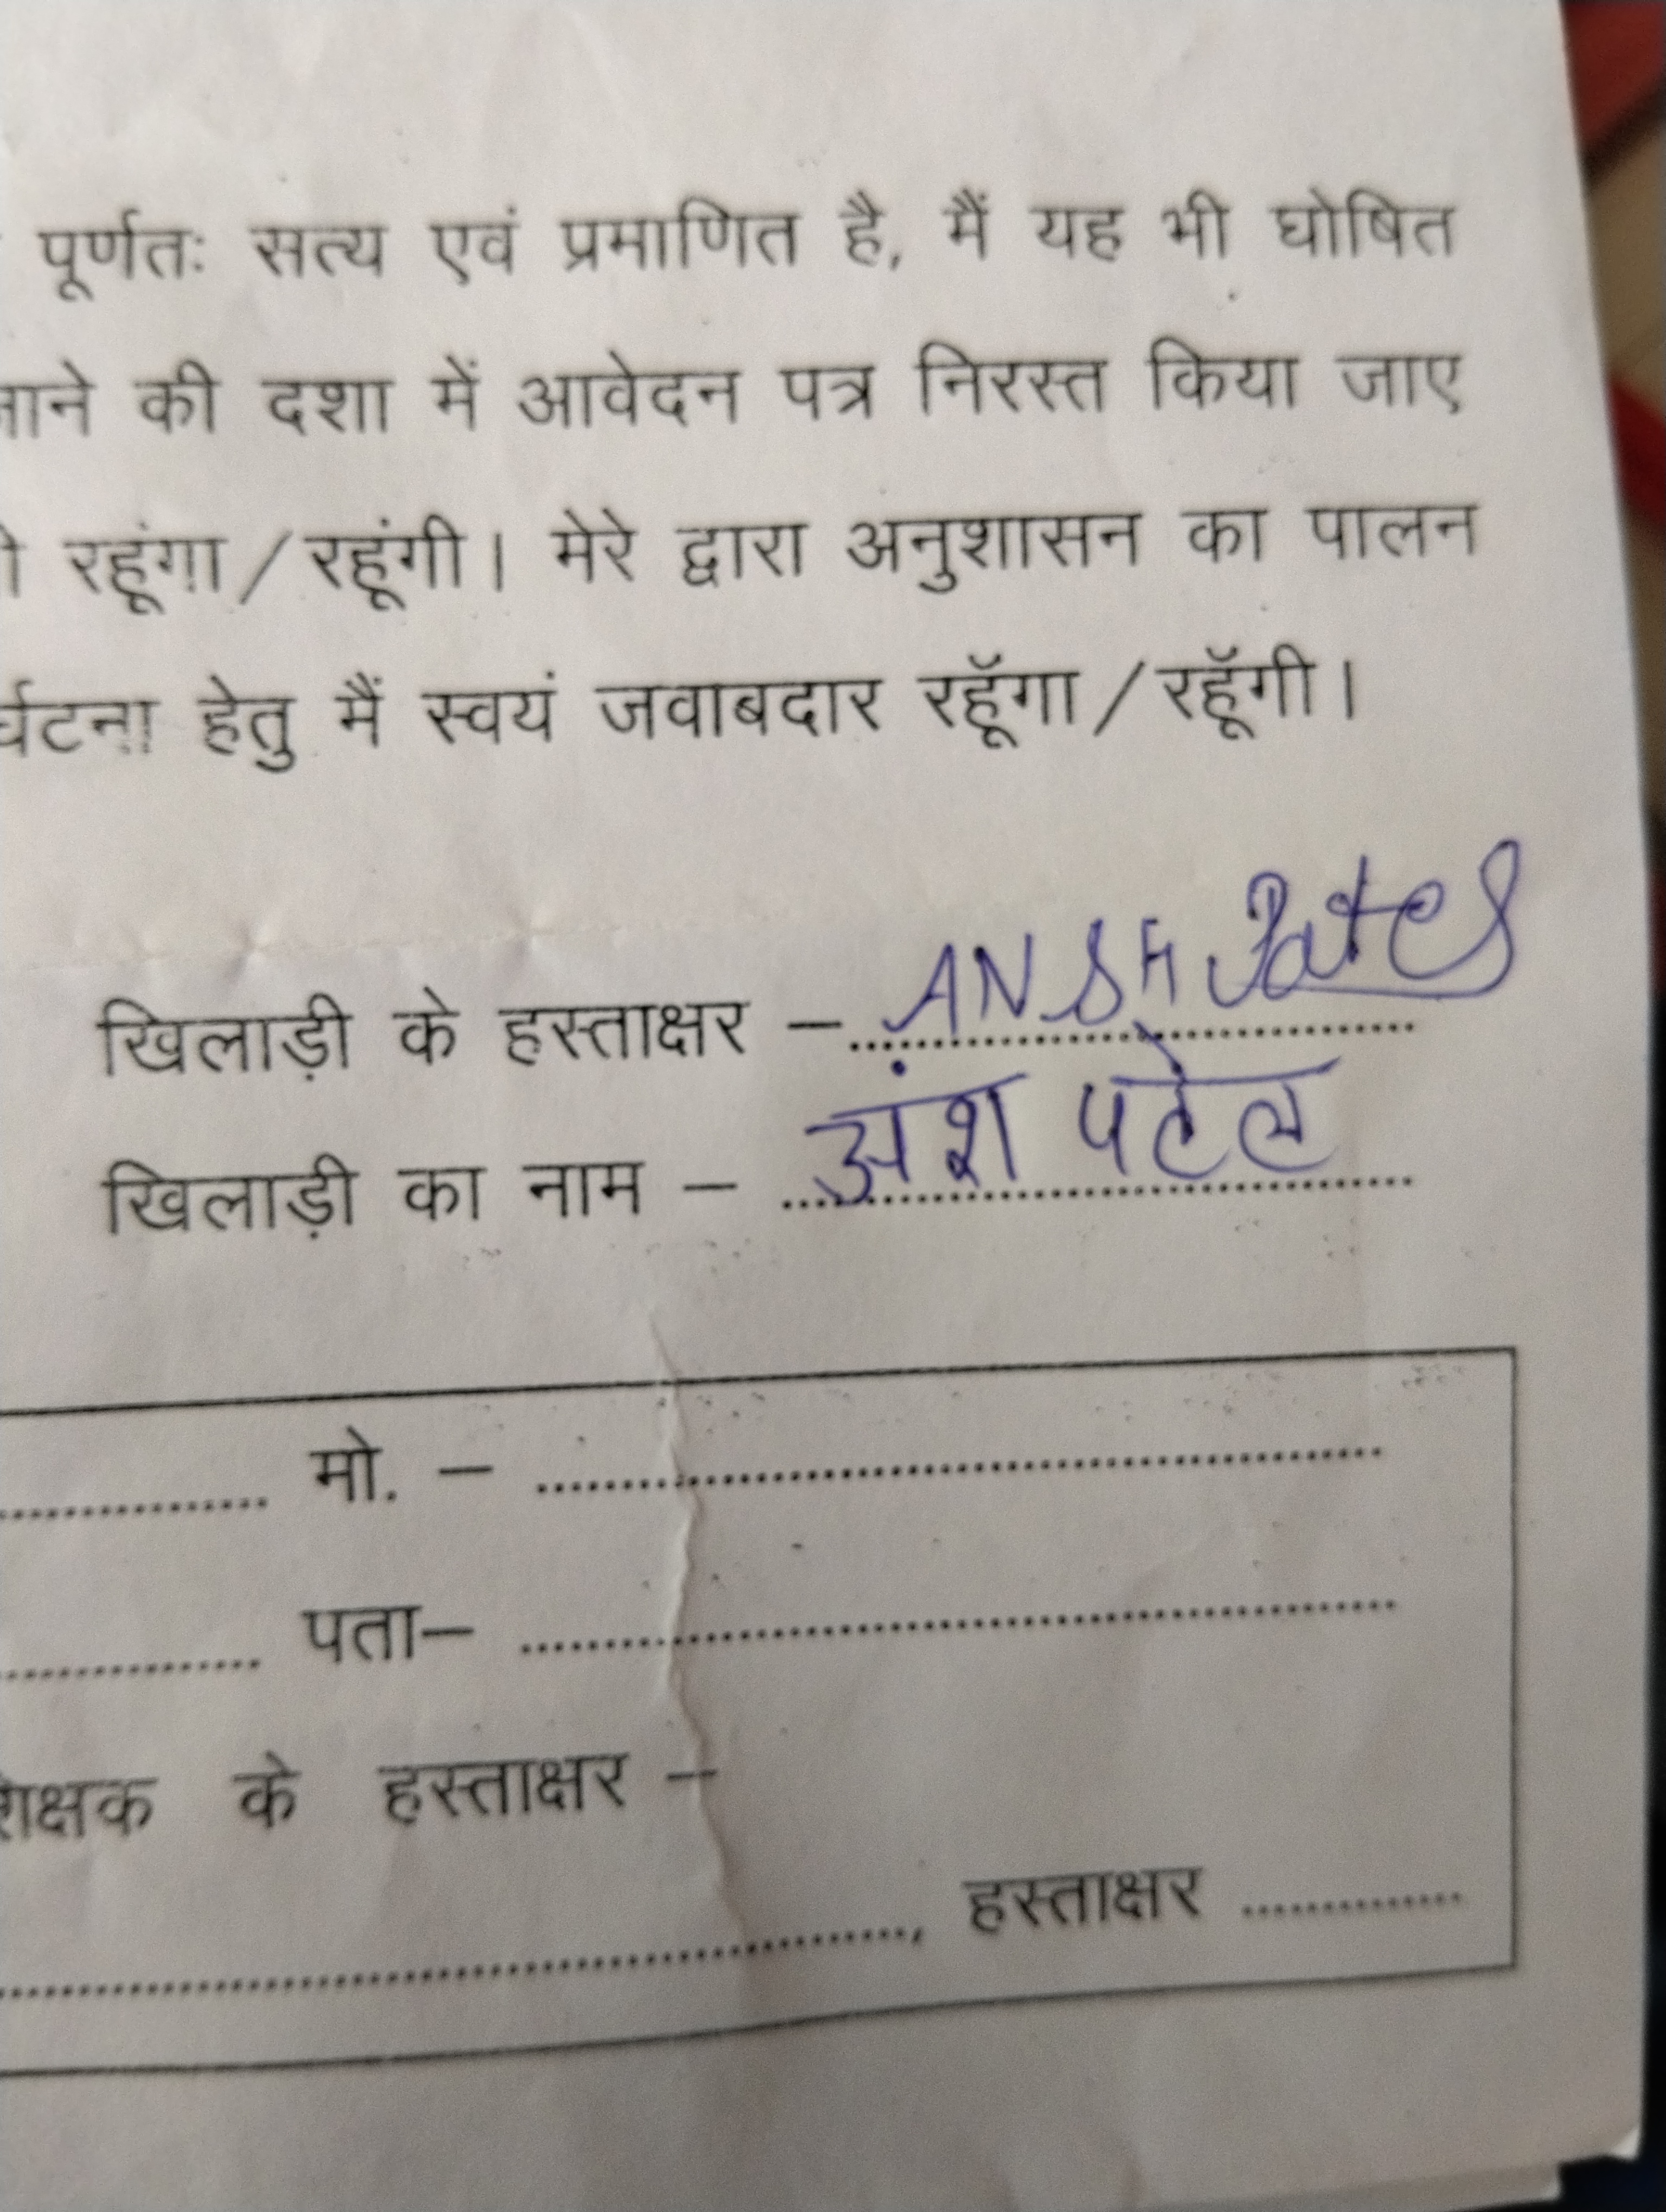 पूर्णतः सत्य एवं प्रमाणित है, मैं यह भी घोषित
जाने की दशा में आवेदन पत्र निरस्त किया जाए
रहूंगा/रहूंगी। मेरे द्वारा अनुशासन का पालन
हेतु मैं स्वयं जवाबदार रहूॅगा/रहूॅगी।
खिलाड़ी के हस्ताक्षर – ANSH Patel
खिलाड़ी का नाम – अंश पटेल
मो. –
पता–
के हस्ताक्षर –
, हस्ताक्षर